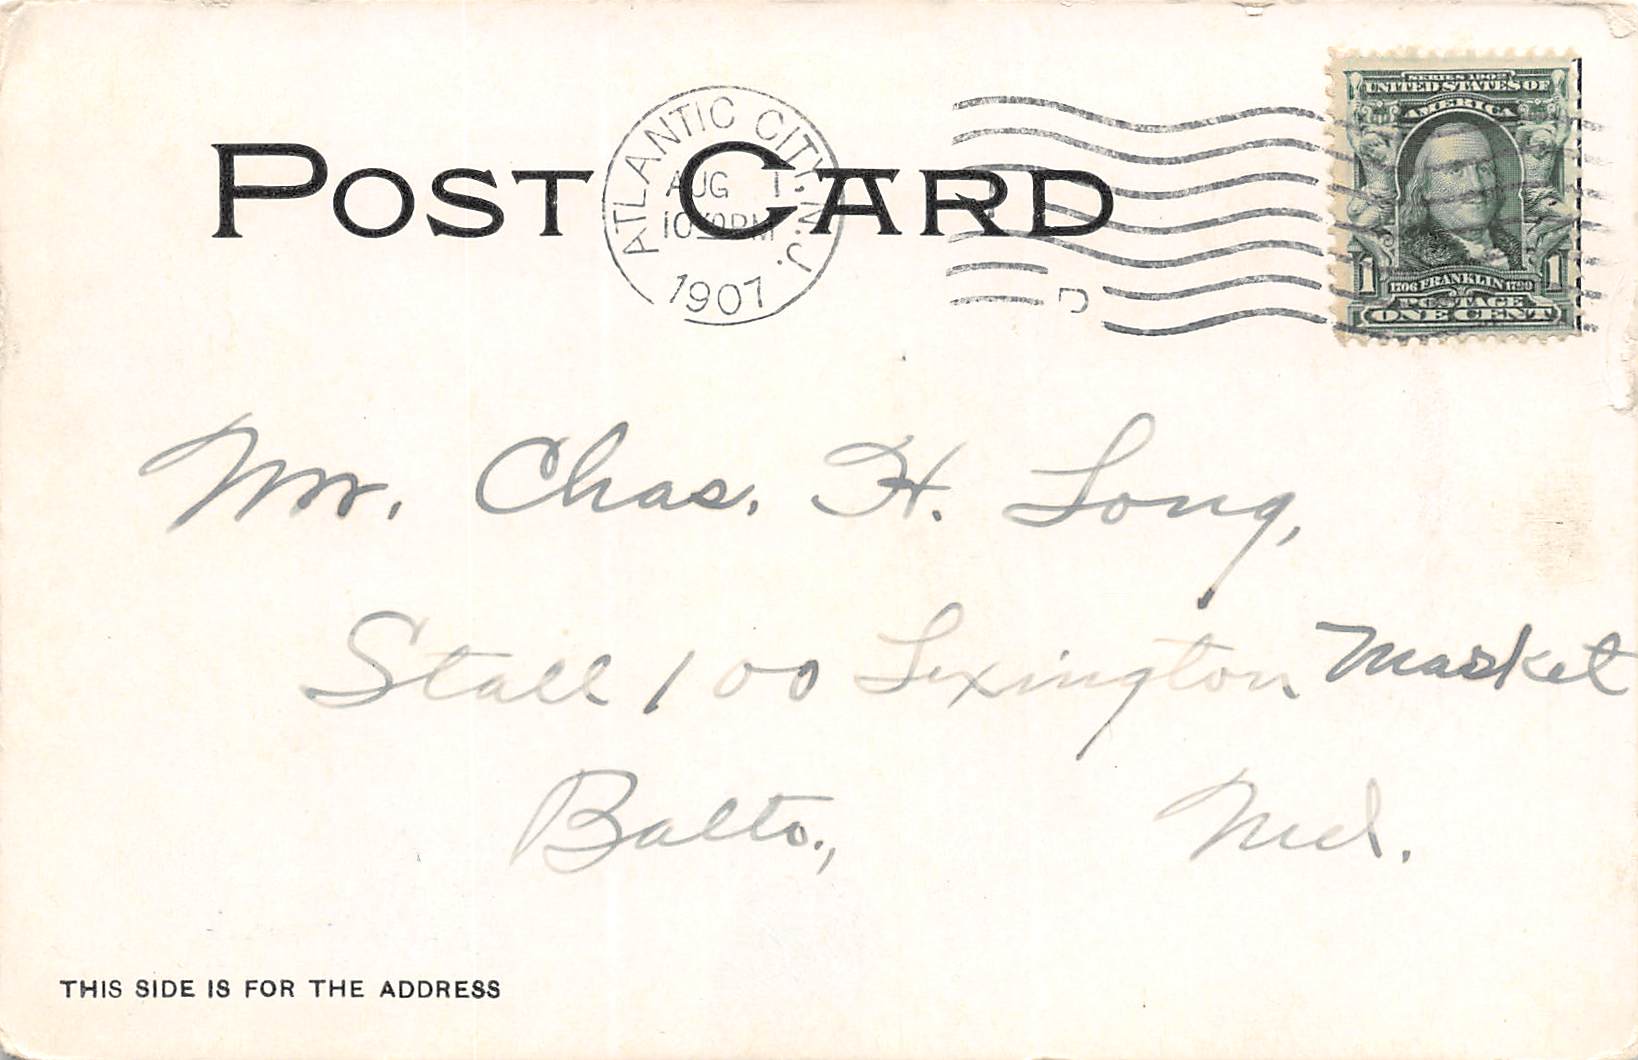 SERIES 1902
UNITED STATES OF
AMERICA
1706 FRANKLIN 1790
1 1
POSTAGE
ONE CENT
ATLANTIC CITY, N.J.
AUG 1
PM
1907
D
POST CARD
Mr. Chas. H. Long,
Stall 100 Lexington Market
Balto., Md.
THIS SIDE IS FOR THE ADDRESS